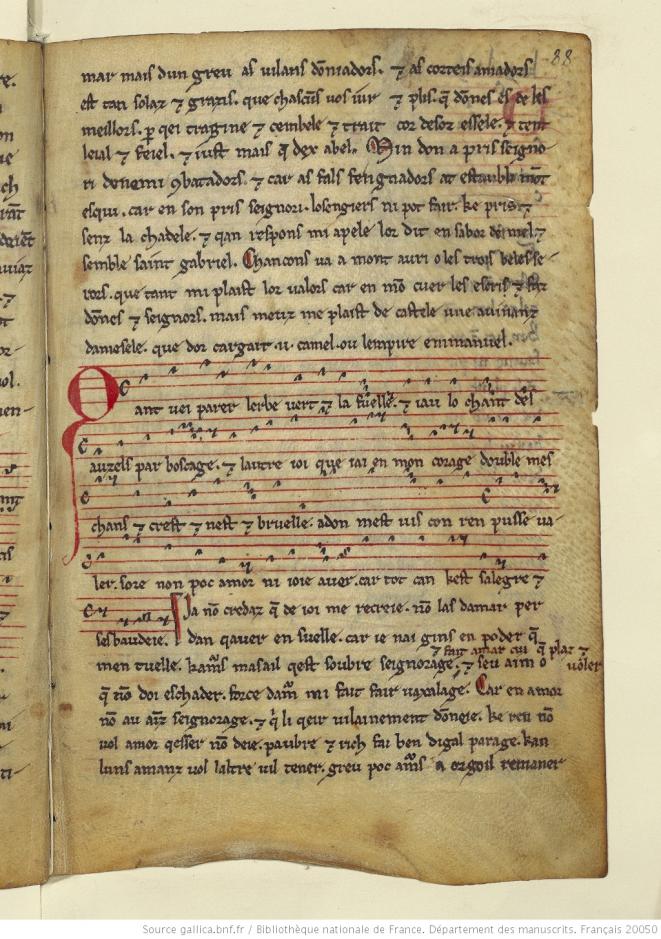 88
mar mais dun greu as uilans dõniadors. ⁊ as corteis amadors
est tan solaz ⁊ granz. que chascũs uos iur ⁊ plus. q̃ dõnes es de les
meillors. p qei tragine ⁊ cembele ⁊ trait cor desor essele. ⁊ tem
leial ⁊ feiel. ⁊ iust mais q̃ dex abel. Min don a pris seigno
ri donemi ꝯbatadors. ⁊ car as fals feignadors at establi mot
esqui. car en son pris seignori. losengiers ni pot fair. ke pris ⁊
senz la chadele. ⁊ qan respons mi apele lor dit en sabor de mel. ⁊
semble saint gabriel. Chancons ua a mont auri o les trois beles se
rors. que tant mi plaist lor ualors car en mõ cuer les escris ⁊ for
dõnes ⁊ seignors. mais meuz me plaist de castele une auinanz
damesele. que dor cargat .u. camel. ou lempire emmanuel.
Qant uei parer lerbe uert ⁊ la fuelle. ⁊ iau lo chant dels
auzels par boscage. ⁊ lautre ioi que iai en mon corage double mes
chans ⁊ crest ⁊ nest ⁊ bruelle. adon mest uis con ren pusse ua
ler. sore non poc amor ni ioie auer. car tot can kest salegre ⁊
sesbaudeie. Ja nõ credaz q̃ de ioi me recreie. nõ las damar per
dan qauer en suelle. car ie nai gins en poder q̃
⁊ fait amar cui q̃ plaz ⁊ uoler
men tuelle. kams masail qest soubre seignorage. ⁊ seu aim o
q̃ nõ doi eschader. force dam mi fait fair uaxalage. Car en amor
nõ au anz seignorage. ⁊ qi li qeir uilainement dõneie. ke ren nõ
uol amor qesser nõ deie. paubre ⁊ rich fai ben digal parage. kan
luns amanz uol laltre uil tener. greu poc ams a orgoil remaner
Source gallica.bnf.fr / Bibliothèque nationale de France. Département des manuscrits. Français 20050